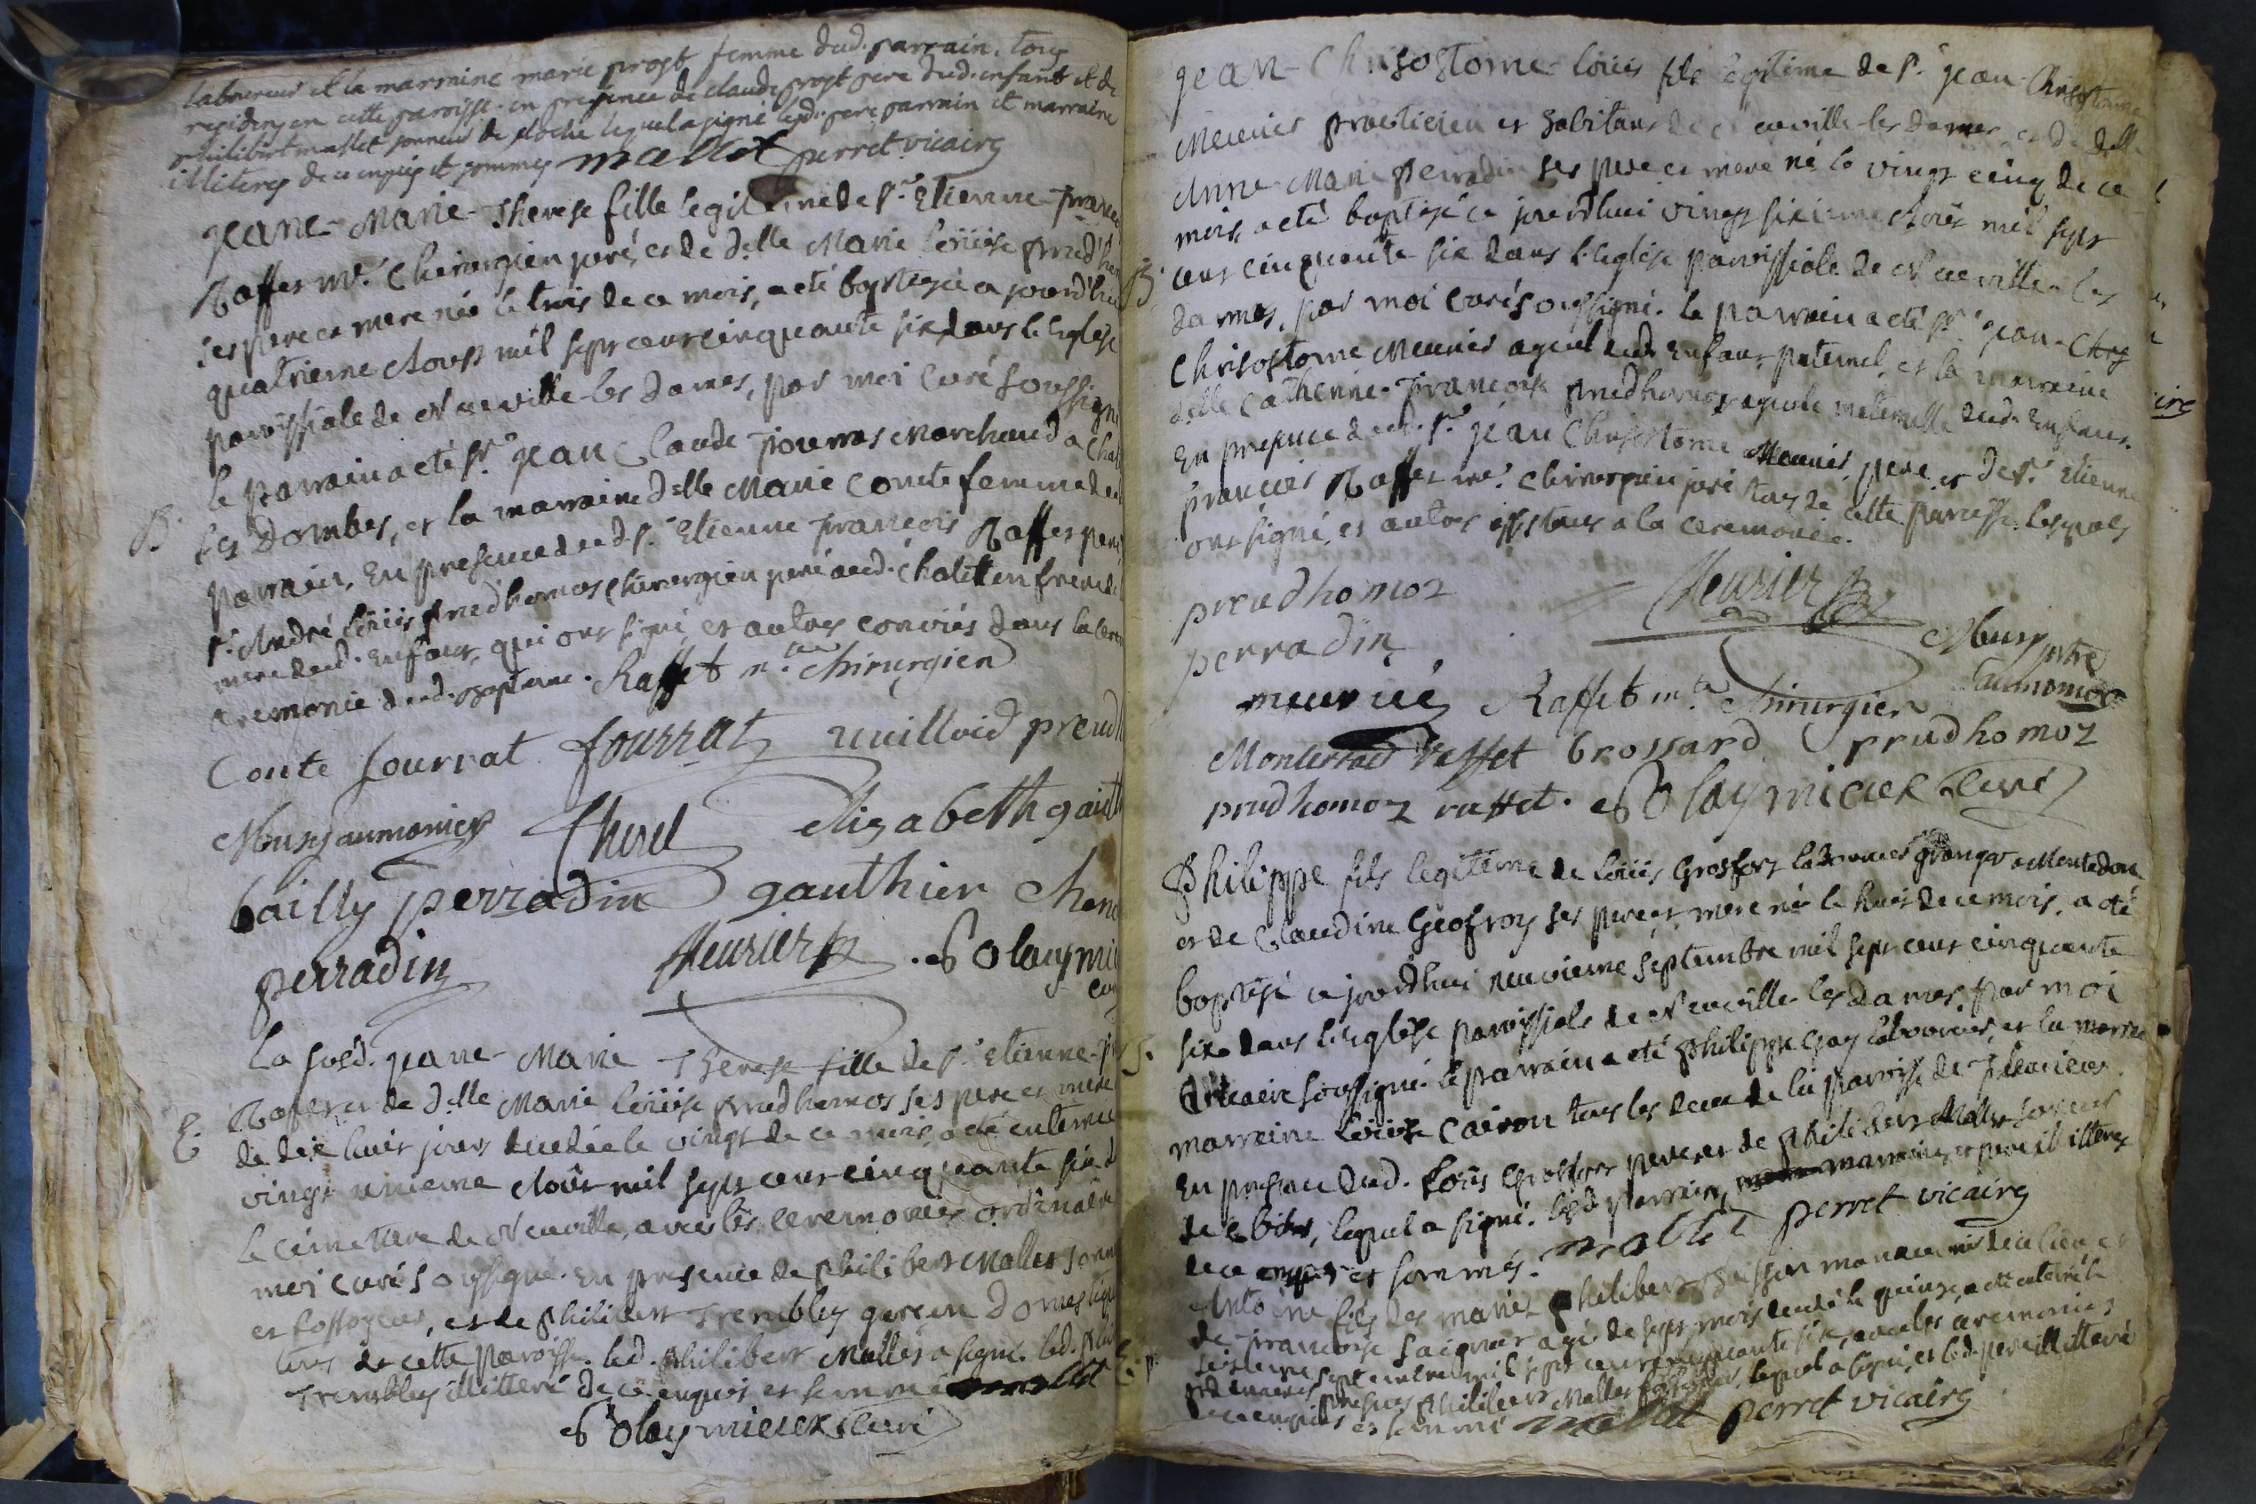 laboureur et la marraine marie prost femme dud. parrain. tous
residens en cette paroisse. en presence de claude prost pere dud. enfant et de
philibert mallet sonneur de cloche lequel a signé lesd. pere parrain et marraine
illiteres de ce enquis et sommes mallet perret vicaire
Jeane-Marie-Therese fille legitime de Sr. Etienne-françois
Raffet me. chirurgien juré, et de delle Marie Loüise prud'hom
ses pere et mere née le trois de ce mois, a eté baptisée ce jourd'hui
quatrieme Aoust mil sept cent cinquante six dans l'Eglise
paroissiale de Neuville-les Dames, par moi Curé soussigné
B. le parrain a eté Sr. Jean Claude fourras Marchand a Chat
les Dombes, et la marraine delle Marie Comte femme dud
parrain. En presence dud. Sr. Etienne françois Raffet pere,
Sr. André Loüis prudhomos chirurgien juré aud. Chatillon frere de la
mere dud. Enfant, qui ont signé et autres conviés dans la cere
ceremonie dud. Bapteme. Raffet me. chirurgien
Conte fourrat fourrat uuilloid prendh
Mury aumonier Cherel Elisabeth gauth
bailly perradin gauthier Chene
perradin Meurier . Solaymieu
cu
La susd. Jeane-Marie Therese fille de Sr. Etienne-fr
E. Raffet et de delle Marie Loüise prudhomos ses pere et mere
de dix huit jours decedée le vingt de ce mois, a eté enterrée
vingt unieme Août mil sept cent cinquante six d
le cimetiere de Neuville, avec les ceremonies ordinaire
moi curé soussigné. En presence de philibert Mallet sonn
et fossoyeur, et de philibert Trembley garçon domestique
tous de cette paroisse. led. philibert Mallet a signé. led. phil
Trembley illitteré de ce enquis et sommé mallet
Solaymieux Curé
Jean-Chrisostome-Loüis fils legitime de Sr. Jean-Chrisostome
Meunier praticien et habitant de Neuville-les Dames, et de delle
Anne-Marie perradin ses pere et mere né le vingt cinq de ce
mois, a eté baptisé ce jourd'hui vingt sixieme Août mil sept
B. cent cinquante six dans l'Eglise paroissiale de Neuville-les
Dames, par moi curé soussigné. le parrain a eté Sr. Jean-
Chrisostome Meunier ayeul dud. Enfant paternel, et la marraine
delle Catherine-françoise prudhomos ayeule maternelle dud. Enfant.
En presence dud. Sr. Jean Chrisostome Meunier pere, et de Sr. Etienne
françois Raffet me. chirurgien juré tous de cette paroisse lesquels
ont signé, et autres assistans a la ceremonie.
prudhomoz Meurier
perradin Mury prtre
meunié Raffet me. chirurgien aumonier
raffet brossard prudhomoz
prudhomoz raffet. Solaymieux Curé
Philippe fils legitime de Loüis Grosfort laboureur granger a Montedon
et de Claudine Geofroy ses pere et mere né le huit de ce mois, a eté
baptisé ce jourd'hui neuvieme septembre mil sept cent cinquante
six dans l'Eglise paroissiale de Neuville les Dames, par moi
vicaire soussigné le parrain a eté philippe Gay laboureur, et la
marraine Loüise Cairon tous les deux de la paroisse de
En presence dud. Loüis Grosfort pere et de philibert Mallet sonneur
de cloches, lequel a signé. lesd. parrain, marraine, et pere illiteres
de ce enquis et sommés. mallet perret vicaire
Antoine fils des mariez philibert Buisson manouvrier de ce lieu et
de françoise Saigner agé de sept mois decedé le quinze, a eté enterré le
E. seizieme septembre mil sept cent cinquante six, avec les ceremonies
ordinaires presens philibert Mallet fossoyeur, lequel a signé, et led. pere illitteré
de ce enquis et sommé mallet perret vicaire